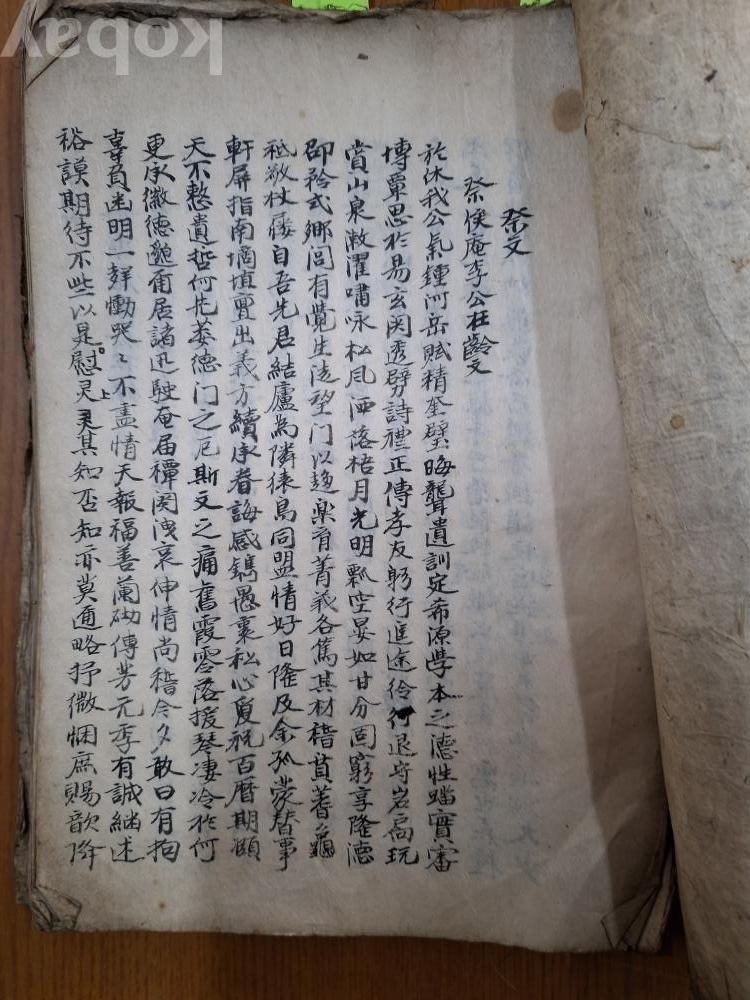 祭文
祭俟庵李公在齡文
於休我公氣鍾河岳賦精奎璧晦聾遺訓定希源學本之德性蹈實審
博覃思於易玄関透劈詩禮正傳孝友躬行進途伶行退守岩扃玩
賞山泉漱濯嘯咏松風洒落梧月光明瓢空晏如甘分固窮享隆德
卲矜式鄕閭有覺生法望门以趍樂育菁莪各篤其材稽貧蓍龜
秪敬杖屨自吾先君結廬為隣猿鳥同盟情好日隆及余孤蒙替事
軒屏指南擿埴亶出義方續承眷誨感鐫愚裏私心夏祝百曆期頤
天不憗遺哲何先萎德门之厄斯文之痛舊霞零落援琴凄冷於何
更承徽德邈甭居諸迅駛奄届禫関洩哀伸情尚稽今夕敢曰有拘
辜負幽明一觧慟哭〻不盡情天報福善蘭砌傳芳元季有誠継述
裕謨期待不些以是慰灵上灵其知否知亦莫逎略抒微悃庶賜歆降
kobay